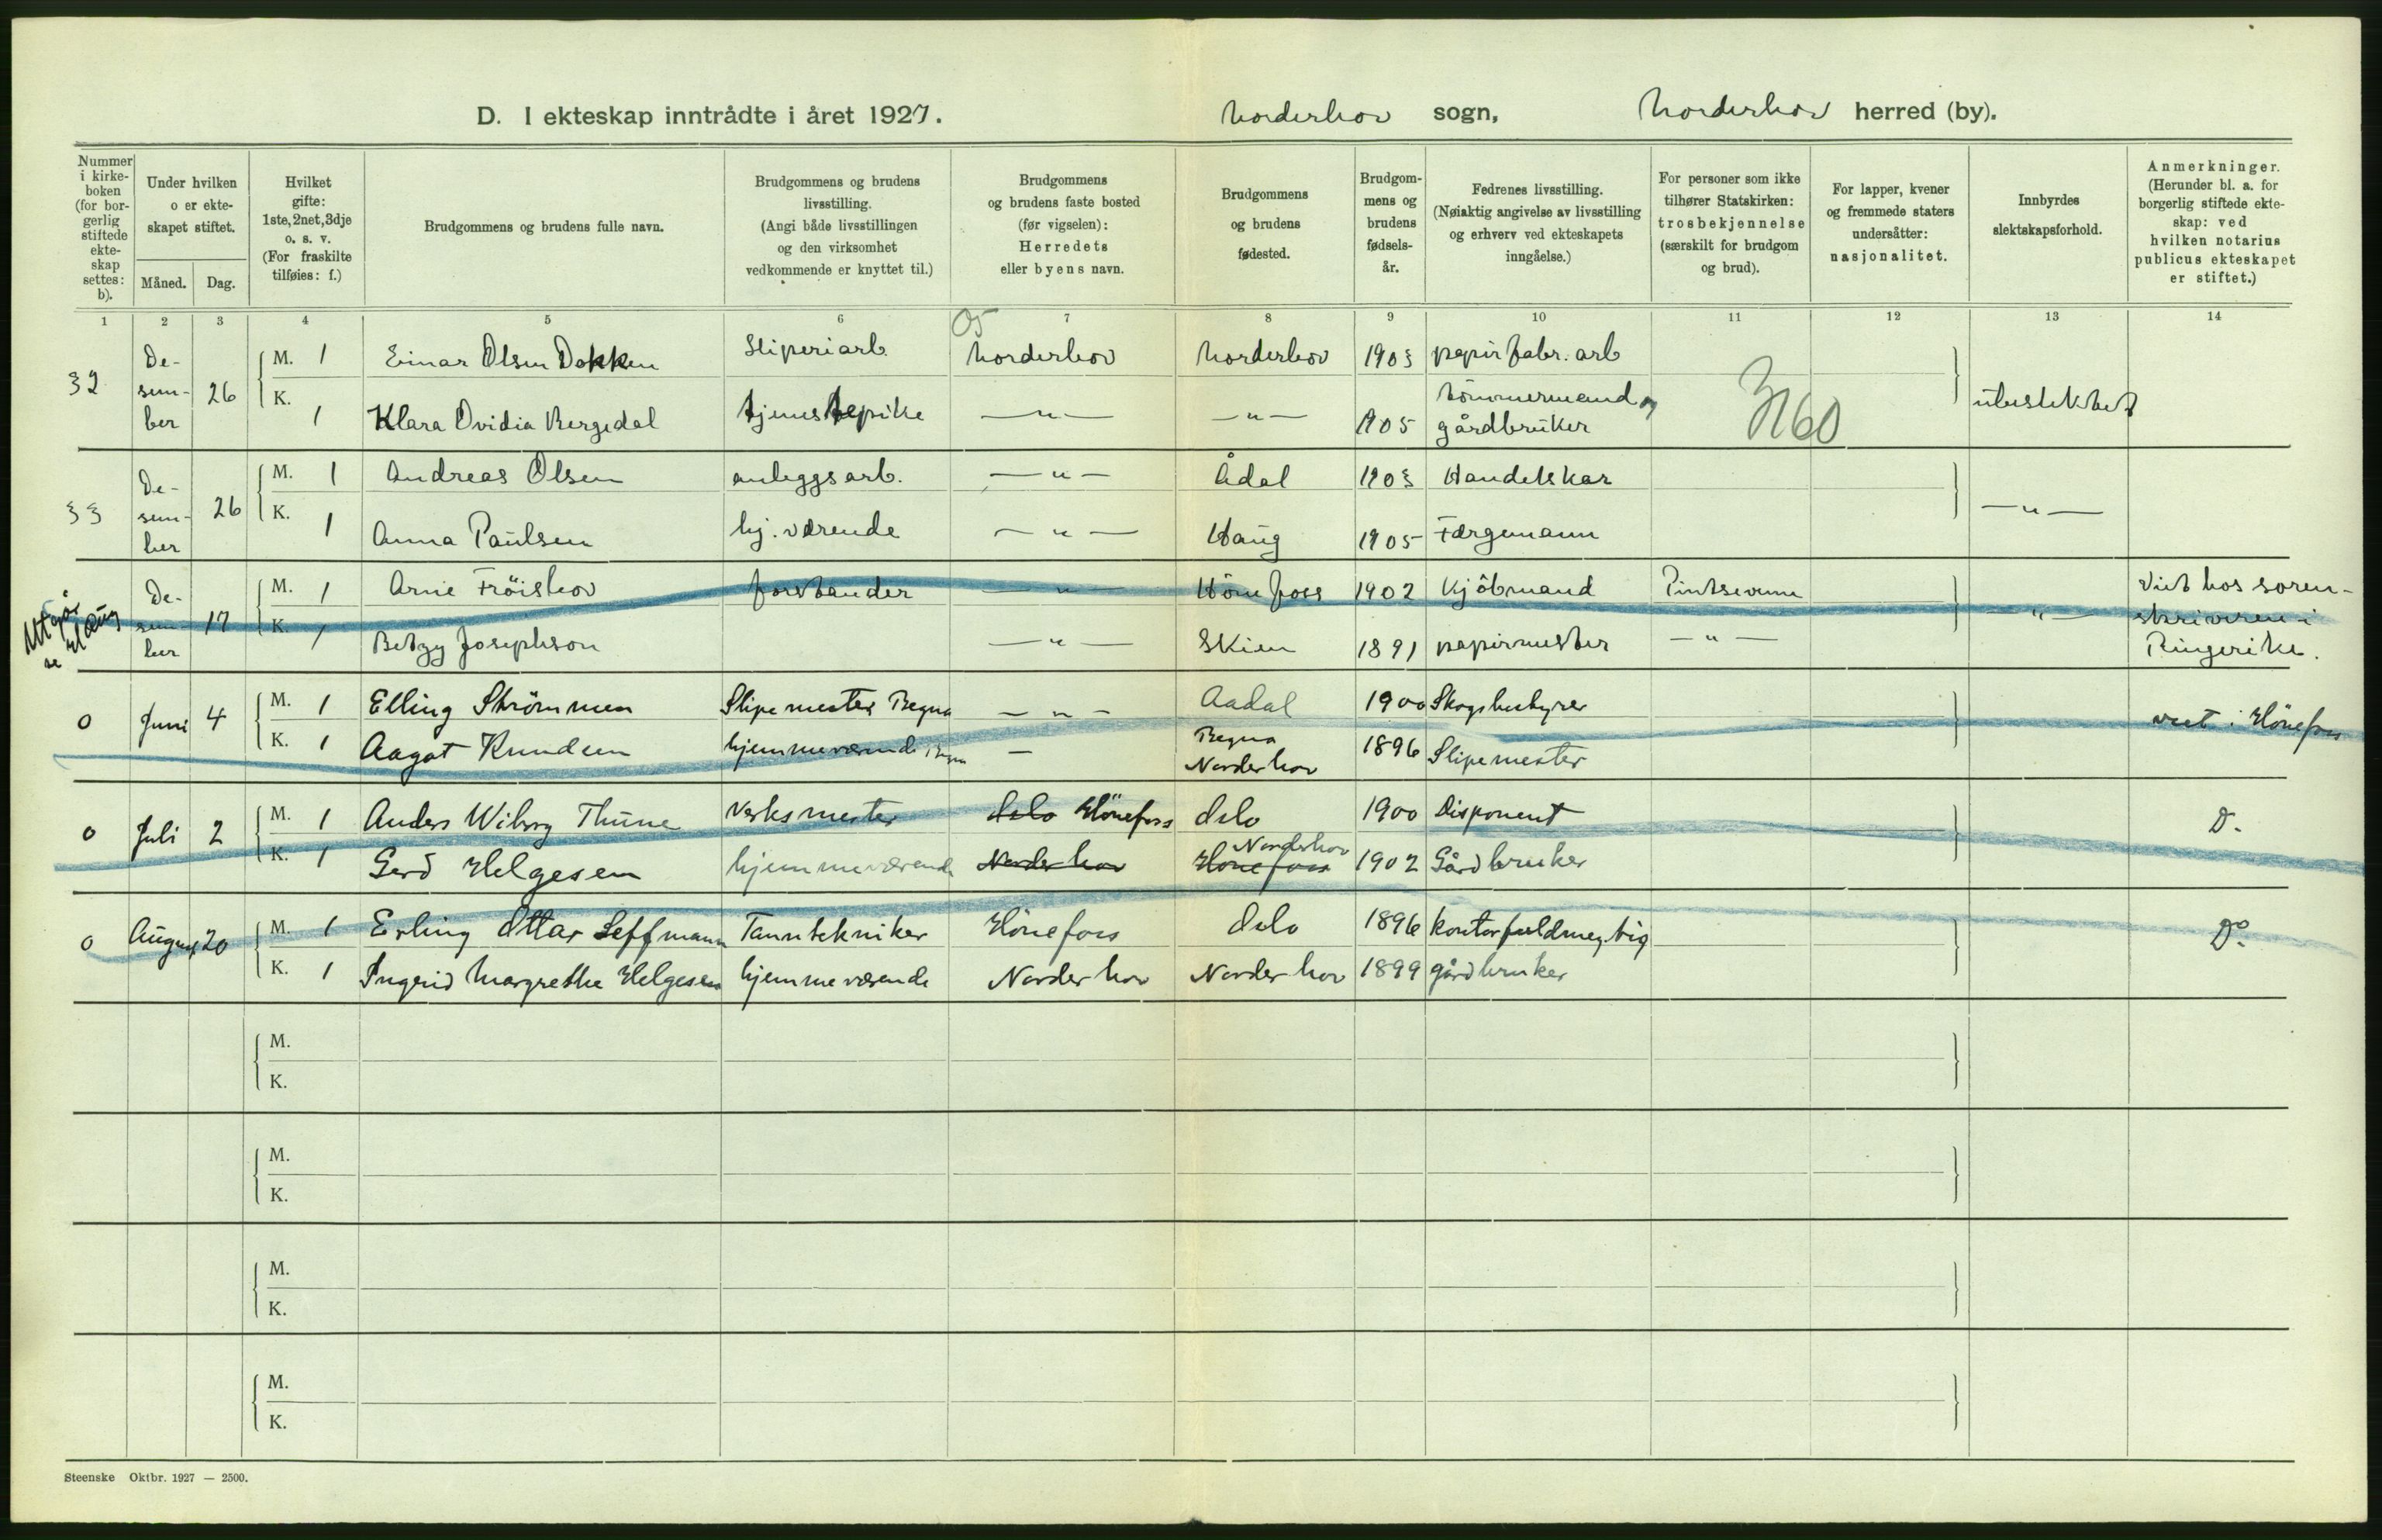 D. I ekteskap inntrådte i året 1927.
Norderhov sogn, Norderhov herred (by).
Nummer i kirke-boken (for bor-gerlig stiftede ekte-skap settes: b).
Under hvilken o er ekte-skapet stiftet.
Måned. Dag.
Hvilket gifte: 1ste, 2net, 3dje o. s. v. (For fraskilte tilføies: f.)
Brudgommens og brudens fulle navn.
Brudgommens og brudens livsstilling. (Angi både livsstillingen og den virksomhet vedkommende er knyttet til.)
Brudgommens og brudens faste bosted (før vigselen): Herredets eller byens navn.
Brudgommens og brudens fødested.
Brudgom-mens og brudens fødsels-år.
Fedrenes livsstilling. (Nøiaktig angivelse av livsstilling og erhverv ved ekteskapets inngåelse.)
For personer som ikke tilhører Statskirken: trosbekjennelse (særskilt for brudgom og brud).
For lapper, kvener og fremmede staters undersåtter: nasjonalitet.
Innbyrdes slektskapsforhold.
Anmerkninger. (Herunder bl. a. for borgerlig stiftede ekte-skap: ved hvilken notarius publicus ekteskapet er stiftet.)
1 2 3 4 5 6 7 8 9 10 11 12 13 14
32 De-sem-ber 26 M. 1 Einar Olsen Dokken Sliperiarb. Norderhov Norderhov 1903 papirfabr. arb
K. 1 Klara Ovidia Bergedal tjenestepike —"— —"— 1905 tömmermand og gårdbruker 3160 ubeslektet
33 De-sem-ber 26 M. 1 Andreas Olsen anleggsarb. —"— Ådal 1903 Handelskar
K. 1 Anna Paulsen hj. værende —"— Haug 1905 Færgemann —"—
Utgår se Haug De-sem-ber 17 M. 1 Arne Fröishov forstander —"— Hönefoss 1902 Kjöbmand Pintsevenn —"— Viet hos soren-skriveren i Ringerike.
K. 1 Betzy Josephson —"— Skien 1891 papirmester —"—
0 Juni 4 M. 1 Elling Strömmen Slipemester Begna —"— Aadal 1900 Skogbestyrer viet i Hönefoss
K. 1 Aagot Knudsen hjemmeværende Begna — Begna Norderhov 1896 Slipemester
0 Juli 2 M. 1 Anders Wiborg Thune Verksmester Oslo Hönefoss Oslo 1900 Disponent D.
K. 1 Gerd Helgesen hjemmeværende Norderhov Hönefoss Norderhov 1902 Gårdbruker
0 August 20 M. 1 Erling Ottar Leffmann Tanntekniker Hönefoss Oslo 1896 Kontorfuldmegtig Do.
K. 1 Ingrid Margrethe Helgesen hjemmeværende Norderhov Norderhov 1899 gårdbruker
M.
K.
M.
K.
M.
K.
M.
K.
Steenske Oktbr. 1927 — 2500.